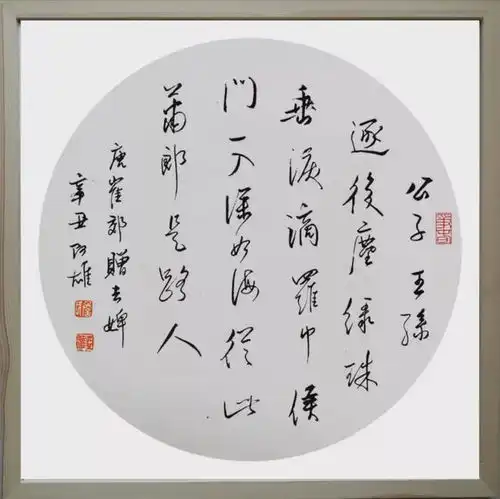 公子王孫
逐後塵綠珠
垂淚滴羅巾侯
門一入深如海從此
蕭郎是路人
唐崔郊贈去婢
辛丑